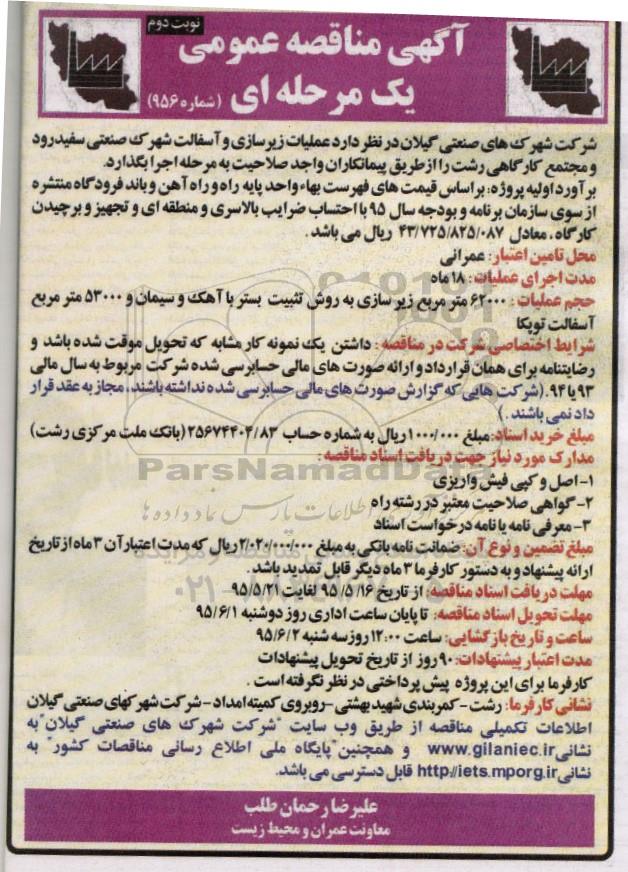 نوبت دوم
آگهی مناقصه عمومی
یک مرحله ای (شماره ۹۵۶)
شرکت شهرک های صنعتی گیلان در نظر دارد عملیات زیرسازی و آسفالت شهرک صنعتی سفیدرود
و مجتمع کارگاهی رشت را از طریق پیمانکاران واجد صلاحیت به مرحله اجرا بگذارد.
برآورد اولیه پروژه: براساس قیمت های فهرست بهاء واحد پایه راه و راه آهن و باند فرودگاه منتشره
از سوی سازمان برنامه و بودجه سال ۹۵ با احتساب ضرایب بالاسری و منطقه ای و تجهیز و برچیدن
کارگاه، معادل ۴۳/۷۲۵/۸۲۵/۰۸۷ ریال می باشد.
محل تامین اعتبار: عمرانی
مدت اجرای عملیات: ۱۸ ماه
حجم عملیات: ۶۲۰۰۰ متر مربع زیرسازی به روش تثبیت بستر با آهک و سیمان و ۵۳۰۰۰ متر مربع
آسفالت توپکا
شرایط اختصاصی شرکت در مناقصه: داشتن یک نمونه کار مشابه که تحویل موقت شده باشد و
رضایتنامه برای همان قرارداد و ارائه صورت های مالی حسابرسی شده شرکت مربوط به سال مالی
۹۳ یا ۹۴. (شرکت هایی که گزارش صورت های مالی حسابرسی شده نداشته باشند، مجاز به عقد قرار
داد نمی باشند.)
مبلغ خرید اسناد: مبلغ ۱۰۰۰/۰۰۰ ریال به شماره حساب ۲۵۶۷۴۴۰۴/۸۳ (بانک ملت مرکزی رشت)
مدارک مورد نیاز جهت دریافت اسناد مناقصه:
۱- اصل و کپی فیش واریزی
۲- گواهی صلاحیت معتبر در رشته راه
۳- معرفی نامه یا نامه درخواست اسناد
مبلغ تضمین و نوع آن: ضمانت نامه بانکی به مبلغ ۲/۰۲۰/۰۰۰/۰۰۰ ریال که مدت اعتبار آن ۳ ماه از تاریخ
ارائه پیشنهاد و به دستور کارفرما ۳ ماه دیگر قابل تمدید باشد.
مهلت دریافت اسناد مناقصه: از تاریخ ۹۵/۵/۱۶ لغایت ۹۵/۵/۲۱
مهلت تحویل اسناد مناقصه: تا پایان ساعت اداری روز دوشنبه ۹۵/۶/۱
ساعت و تاریخ بازگشایی: ساعت ۱۲:۰۰ روز سه شنبه ۹۵/۶/۲
مدت اعتبار پیشنهادات: ۹۰ روز از تاریخ تحویل پیشنهادات
کارفرما برای این پروژه پیش پرداختی در نظر نگرفته است.
نشانی کارفرما: رشت - کمربندی شهید بهشتی - روبروی کمیته امداد - شرکت شهرکهای صنعتی گیلان
اطلاعات تکمیلی مناقصه از طریق وب سایت "شرکت شهرک های صنعتی گیلان" به
نشانی www.gilaniec.ir و همچنین "پایگاه ملی اطلاع رسانی مناقصات کشور" به
نشانی http://iets.mporg.ir قابل دسترسی می باشد.
علیرضا رحمان طلب
معاونت عمران و محیط زیست
ParsNamadData